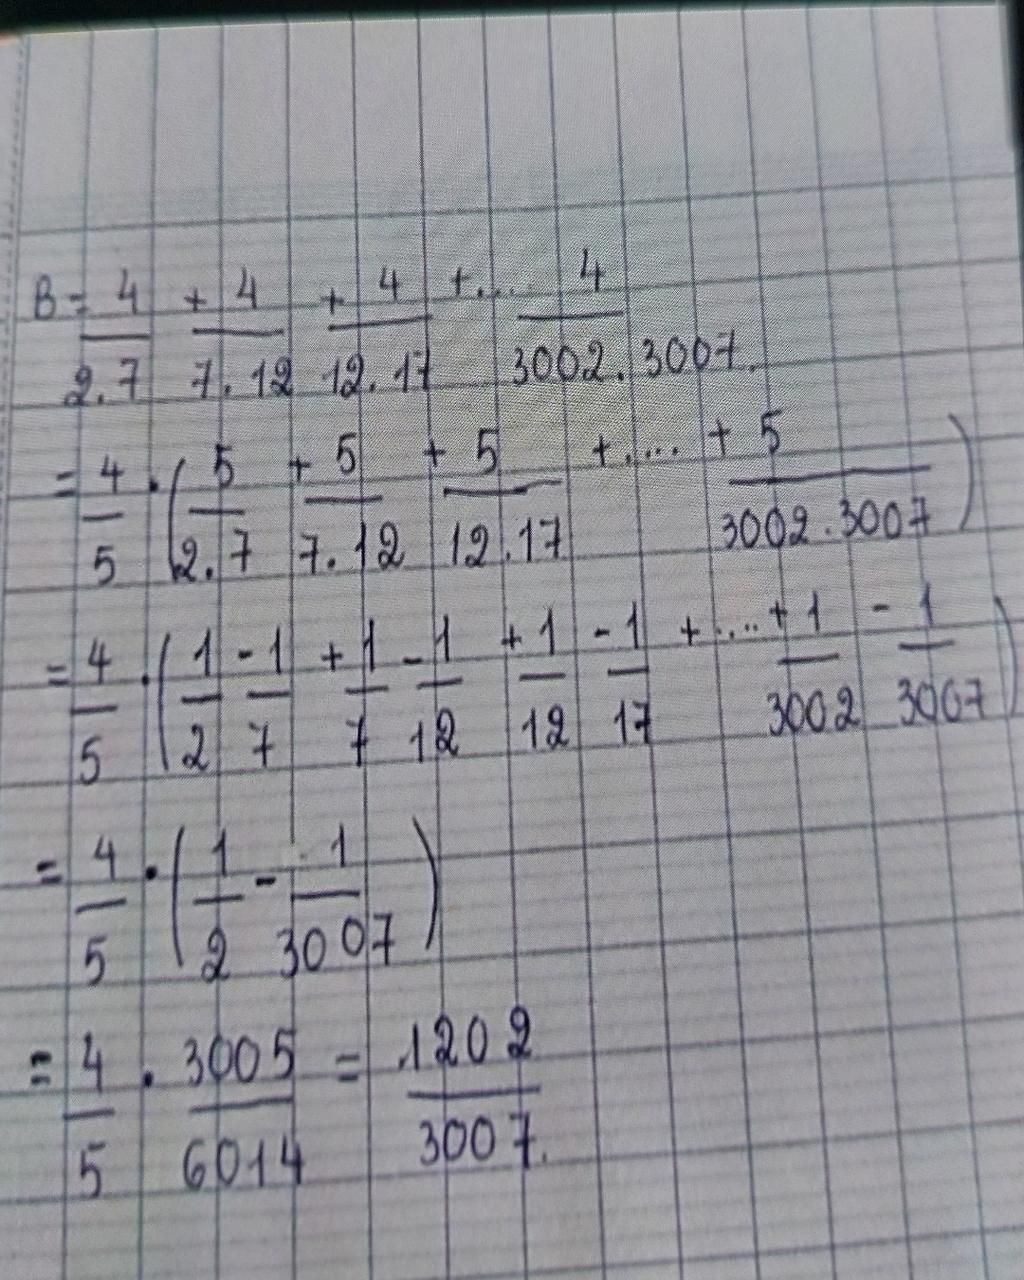 B = 4/2.7 + 4/7.12 + 4/12.17 + .... 4/3002.3007.
= 4/5 . (5/2.7 + 5/7.12 + 5/12.17 + .... + 5/3002.3007)
= 4/5 . (1/2 - 1/7 + 1/7 - 1/12 + 1/12 - 1/17 + .... + 1/3002 - 1/3007)
= 4/5 . (1/2 - 1/3007)
= 4/5 . 3005/6014 = 1202/3007.